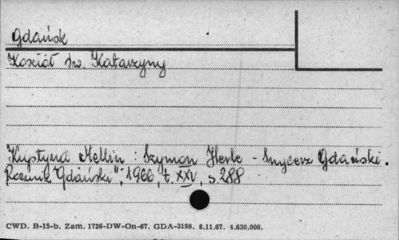 Gdańsk
Kościół św. Katarzyny
Krystyna Mellin : Szymon Herle - Snycerz Gdański.
Rocznik Gdański", 1966, t. XXV, s. 288
CWD. B-15-b. Zam. 1726-DW-On-67. GDA-3198. 8.11.67. 4.630.000.